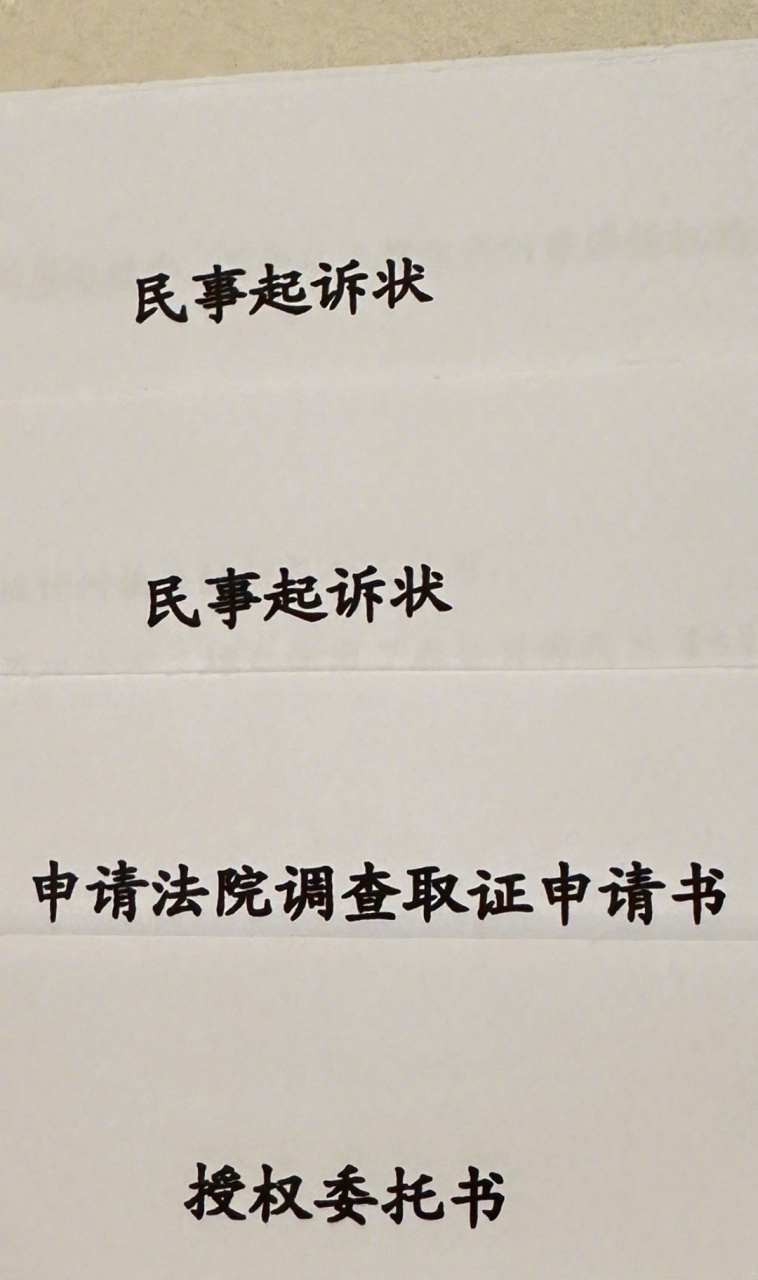 民事起诉状
民事起诉状
申请法院调查取证申请书
授权委托书